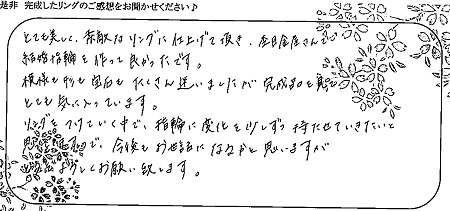 是非 完成したリングのご感想をお聞かせください♪
とても美しく、素敵なリングに仕上げて頂き、杢目金屋さんで
結婚指輪を作って良かったです。
模様も形も宝石もたくさん迷いましたが完成品を見て
とても気に入っています。
リングをつけていく中で、指輪に変化を少しずつ持たせていきたいと
思いますので、今後もお世話になるかと思いますが
よろしくお願い致します。